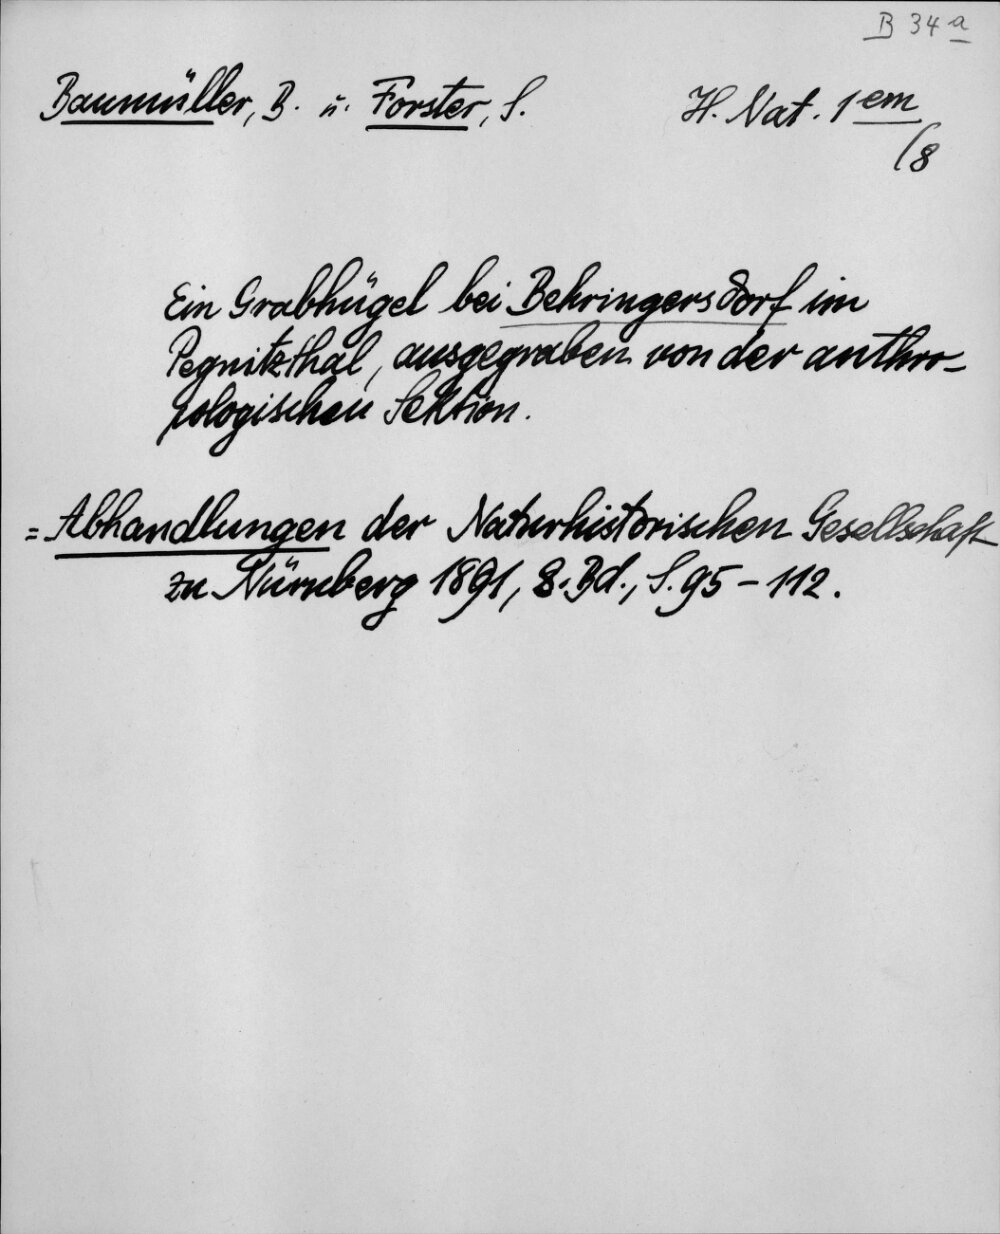 B 34 a
Baumüller, B. u. Forster, S. H. Nat. 1 em
/8
Ein Grabhügel bei Behringersdorf im
Pegnitzthal, ausgegraben von der anthro-
pologischen Sektion.
= Abhandlungen der Naturhistorischen Gesellschaft
zu Nürnberg 1891, 8. Bd., S. 95 - 112.